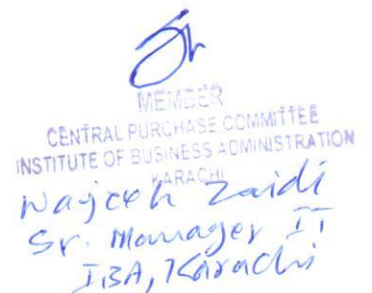 MEMBER
CENTRAL PURCHASE COMMITTEE
INSTITUTE OF BUSINESS ADMINISTRATION
KARACHI
Wajeeh Zaidi
Sr. Manager IT
IBA, Karachi